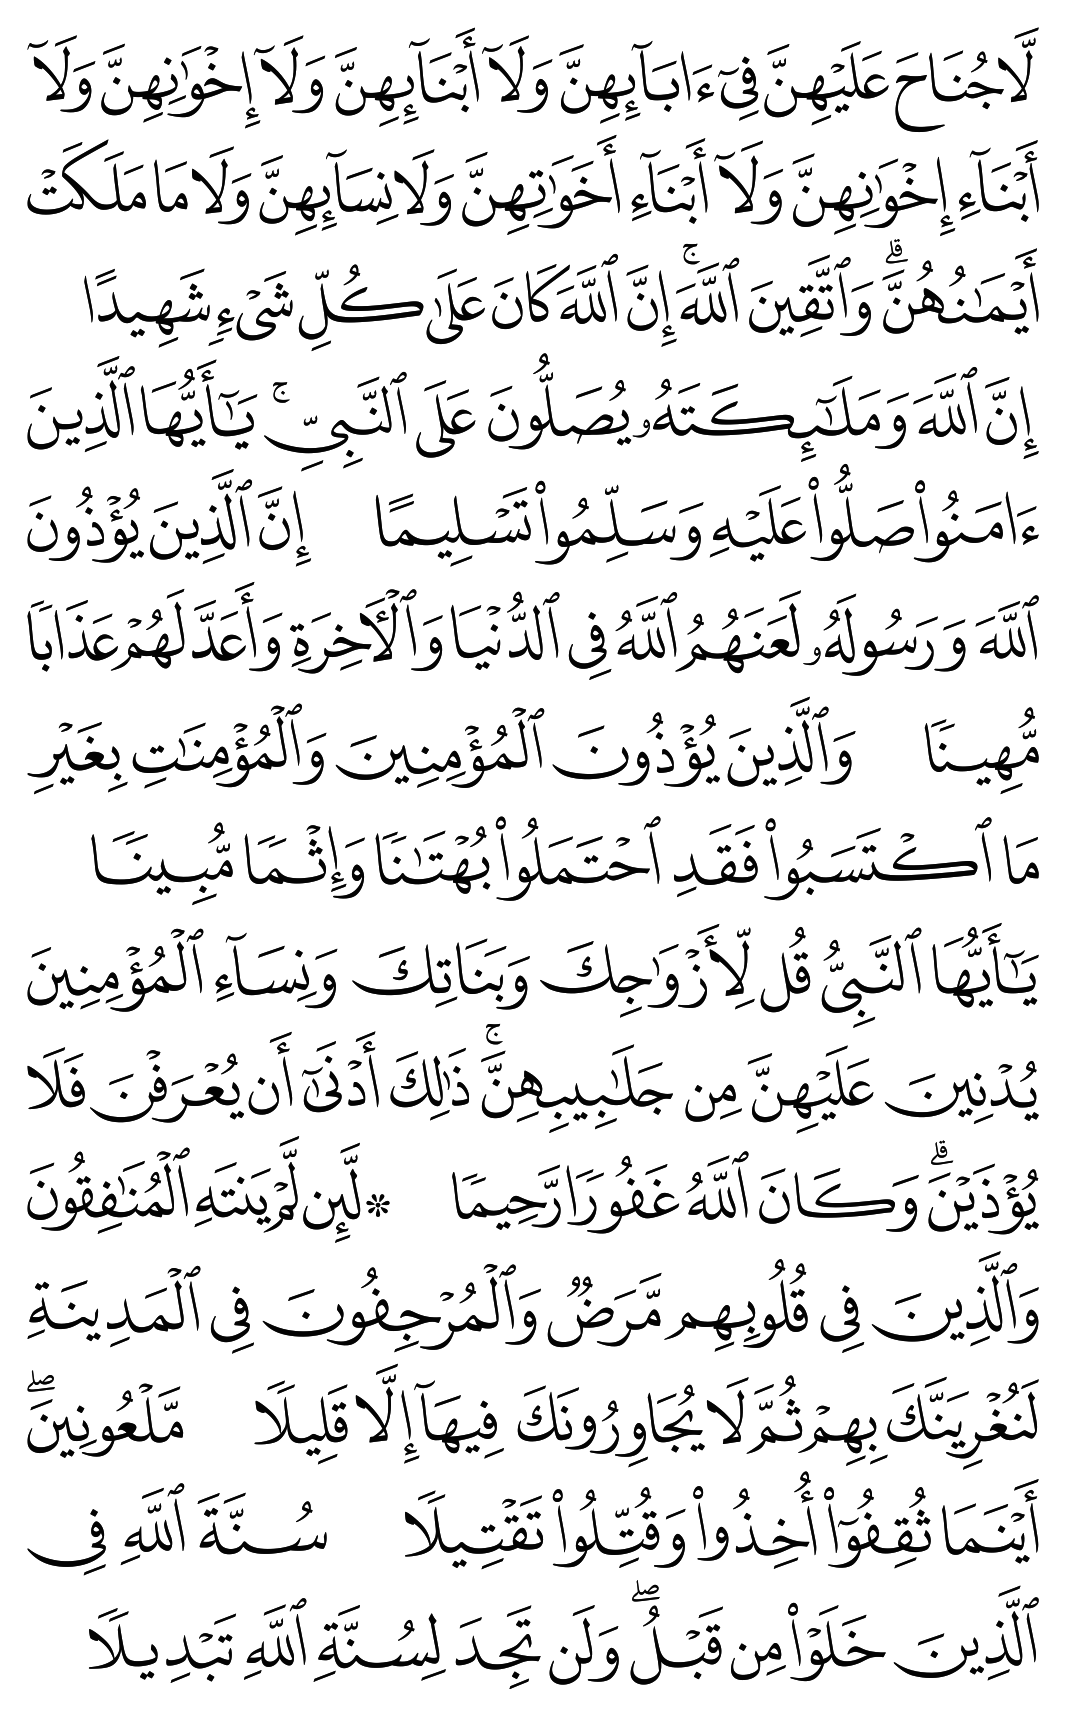 لَّا جُنَاحَ عَلَيْهِنَّ فِىٓ ءَابَآئِهِنَّ وَلَآ أَبْنَآئِهِنَّ وَلَآ إِخْوَٰنِهِنَّ وَلَآ
أَبْنَآءِ إِخْوَٰنِهِنَّ وَلَآ أَبْنَآءِ أَخَوَٰتِهِنَّ وَلَا نِسَآئِهِنَّ وَلَا مَا مَلَكَتْ
أَيْمَٰنُهُنَّ ۗ وَٱتَّقِينَ ٱللَّهَ ۚ إِنَّ ٱللَّهَ كَانَ عَلَىٰ كُلِّ شَىْءٍ شَهِيدًا
إِنَّ ٱللَّهَ وَمَلَٰٓئِكَتَهُۥ يُصَلُّونَ عَلَى ٱلنَّبِىِّ ۚ يَٰٓأَيُّهَا ٱلَّذِينَ
ءَامَنُوا۟ صَلُّوا۟ عَلَيْهِ وَسَلِّمُوا۟ تَسْلِيمًا إِنَّ ٱلَّذِينَ يُؤْذُونَ
ٱللَّهَ وَرَسُولَهُۥ لَعَنَهُمُ ٱللَّهُ فِى ٱلدُّنْيَا وَٱلْءَاخِرَةِ وَأَعَدَّ لَهُمْ عَذَابًا
مُّهِينًا وَٱلَّذِينَ يُؤْذُونَ ٱلْمُؤْمِنِينَ وَٱلْمُؤْمِنَٰتِ بِغَيْرِ
مَا ٱكْتَسَبُوا۟ فَقَدِ ٱحْتَمَلُوا۟ بُهْتَٰنًا وَإِثْمًا مُّبِينًا
يَٰٓأَيُّهَا ٱلنَّبِىُّ قُل لِّأَزْوَٰجِكَ وَبَنَاتِكَ وَنِسَآءِ ٱلْمُؤْمِنِينَ
يُدْنِينَ عَلَيْهِنَّ مِن جَلَٰبِيبِهِنَّ ۚ ذَٰلِكَ أَدْنَىٰٓ أَن يُعْرَفْنَ فَلَا
يُؤْذَيْنَ ۗ وَكَانَ ٱللَّهُ غَفُورًا رَّحِيمًا ۞ لَّئِن لَّمْ يَنتَهِ ٱلْمُنَٰفِقُونَ
وَٱلَّذِينَ فِى قُلُوبِهِم مَّرَضٌ وَٱلْمُرْجِفُونَ فِى ٱلْمَدِينَةِ
لَنُغْرِيَنَّكَ بِهِمْ ثُمَّ لَا يُجَاوِرُونَكَ فِيهَآ إِلَّا قَلِيلًا مَّلْعُونِينَ ۖ
أَيْنَمَا ثُقِفُوٓا۟ أُخِذُوا۟ وَقُتِّلُوا۟ تَقْتِيلًا سُنَّةَ ٱللَّهِ فِى
ٱلَّذِينَ خَلَوْا۟ مِن قَبْلُ ۖ وَلَن تَجِدَ لِسُنَّةِ ٱللَّهِ تَبْدِيلًا